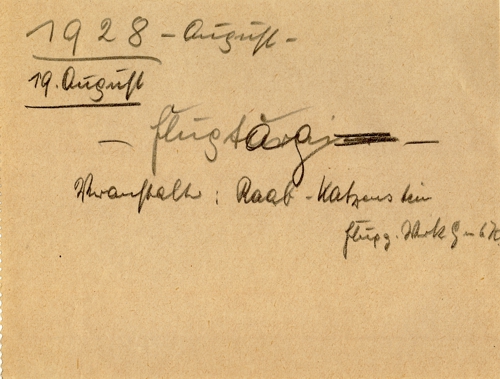 1928 - August -
19. August
- Flugtag -
Veranstalter: Raab-Katzenstein
Flugz. Werk GmbH